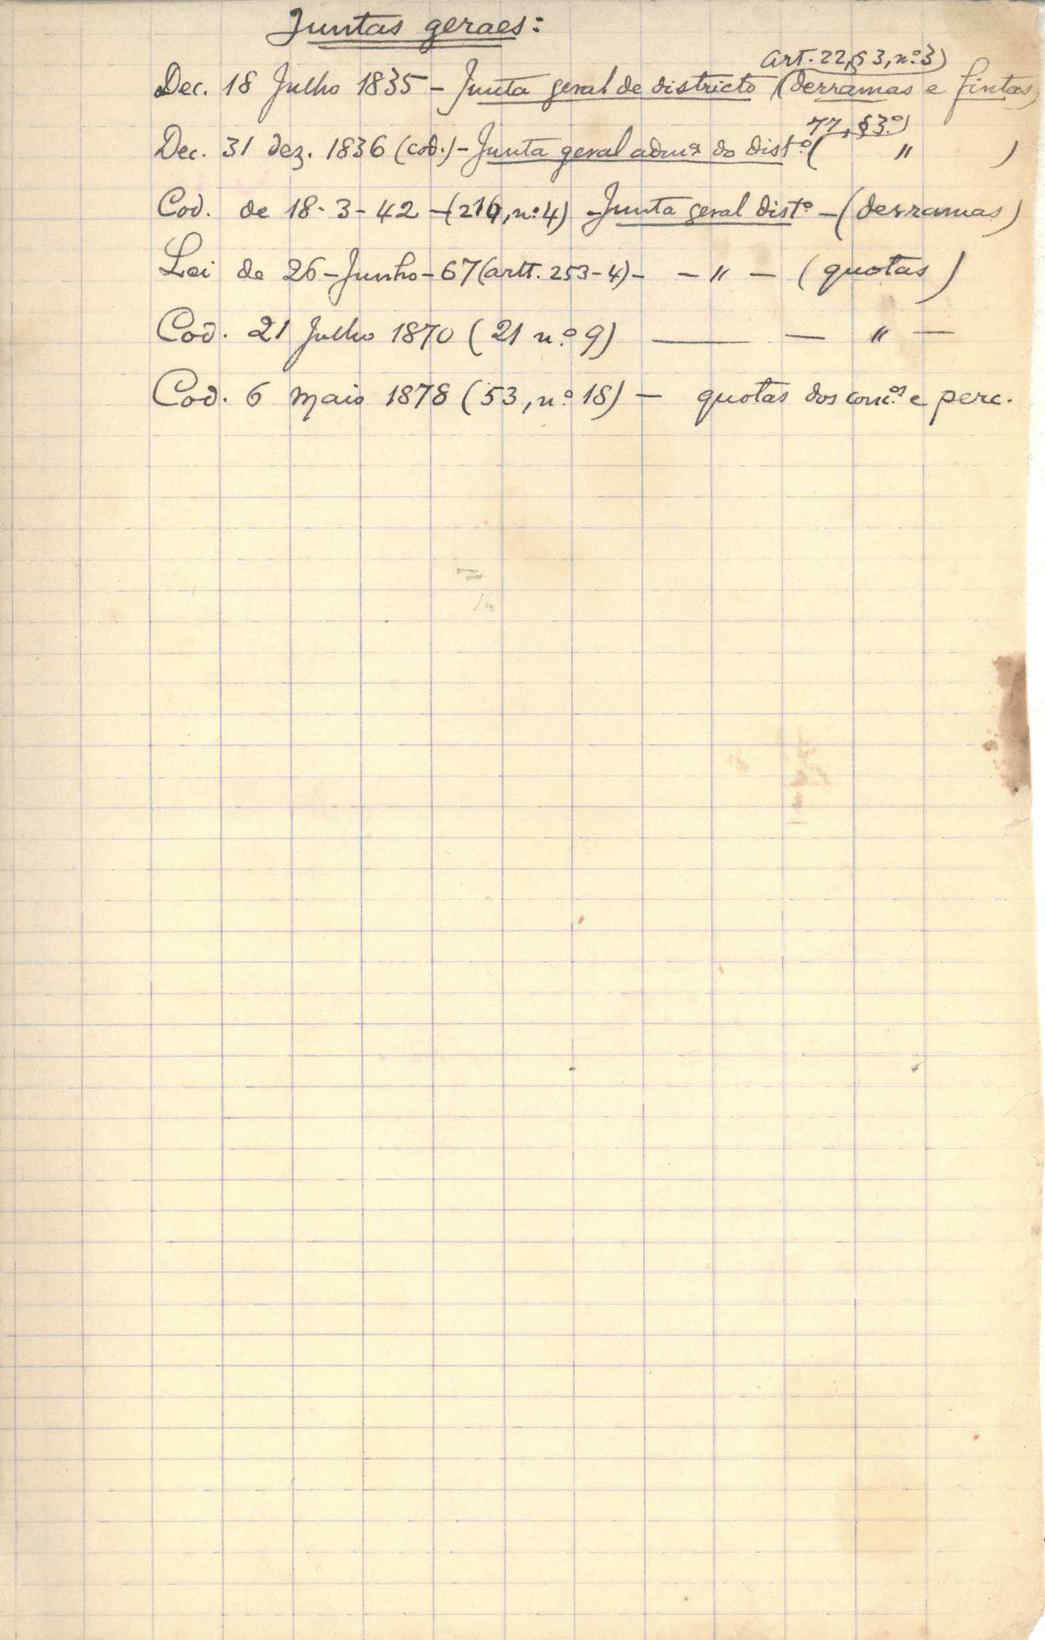 Juntas geraes:
art. 22, § 3, nº 3)
Dec. 18 Julho 1835 - Junta geral de districto (derramas e fintas)
77, § 3º)
Dec. 31 dez. 1836 (cod.) - Junta geral admª do distº ( " )
Cod. de 18-3-42 - (216, nº 4) - Junta geral distº - (derramas)
Lei de 26-Junho-67 (artt. 253-4) - - " - (quotas)
Cod. 21 Julho 1870 (21 nº 9) — — " —
Cod. 6 Maio 1878 (53, nº 18) - quotas dos conc.os e perc.